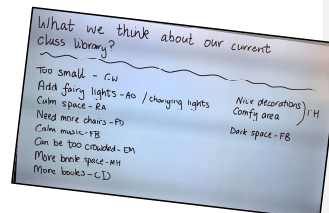 What we think about our current
class library?
Too small - r.w
Add fairy lights - AO / changing lights
Calm space - RA
Need more chairs - PD
Calm music - FB
Can be too crowded - EM
More book space - MH
More books - CD
Nice decorations
Comfy area
IH
Dark space - FB